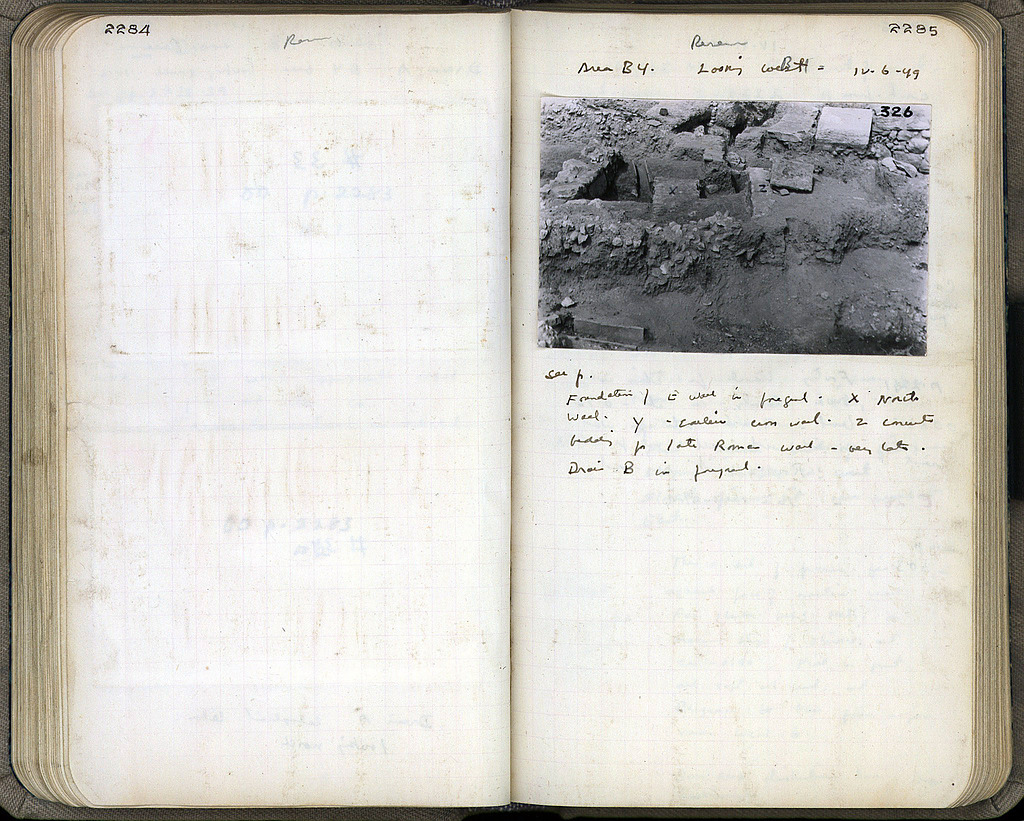 2284
2285
Area B4. Looking = 12-6-49
326
X
Z
See p.
Foundation / E wall in foregrd. X North
Wall. Y - earlier cross wall. Z concrete
bedding for late Roman wall - very late.
Drain B in foregrd.